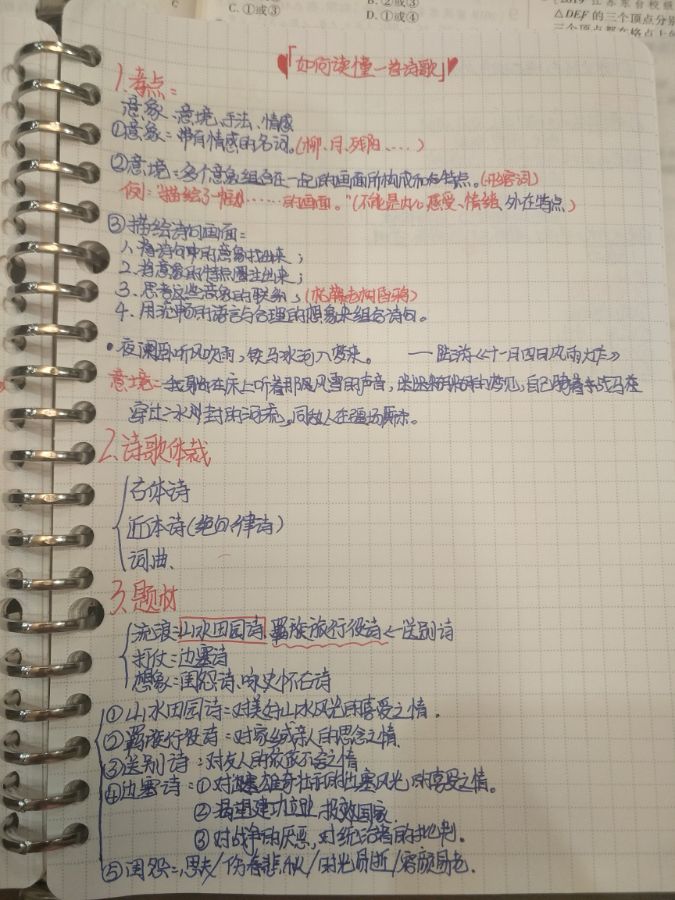 C. ①或③
B. ②或③
D. ①或④
△DEF 的三个顶点分别
「如何读懂一首诗歌」
1.考点：
意象、意境、手法、情感
①意象：带有情感的名词。(柳、月、残阳……)
②意境：多个意象组合在一起的画面所构成而有特点。(形容词)
例："描绘了一幅……的画面。"(不能是内心感受、情绪、外在特点)
③描绘诗句画面：
1、将诗句中的意象找出来；
2.将意象的特点圈注出来；
3.思考这些意象的联系，(枯藤老树昏鸦)
4.用流畅的语言与合理的想象来组合诗句。
•夜阑卧听风吹雨，铁马冰河入梦来。 ——陆游《十一月四日风雨大作》
意境：我躺在床上听着那风雪的声音，梦见，自己骑着战马在
穿过冰封的河流，同敌人在疆场厮杀。
2.诗歌体裁
古体诗
近体诗(绝句、律诗)
词曲、
3.题材
流浪：山水田园诗 羁旅行役诗←送别诗
打仗：边塞诗
想象：闺怨诗、咏史怀古诗
①山水田园诗：对美好山水风光的喜爱之情.
②羁旅行役诗：对家乡亲人的思念之情.
③送别诗：对友人的依依不舍之情
④边塞诗：①对雄奇壮丽的边塞风光的喜爱之情。
②渴望建功立业、报效国家.
③对战争的厌恶，对统治者的批判.
⑤闺怨：思夫/伤春悲秋/时光易逝/容颜易老.